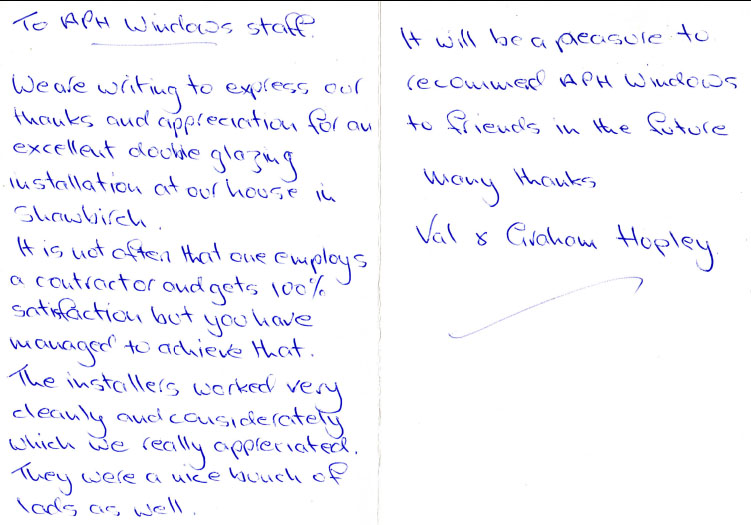 To APH Windows staff.
We are writing to express our
thanks and appreciation for an
excellent double glazing
installation at our house in
Shawbirch.
It is not often that one employs
a contractor and gets 100%
satisfaction but you have
managed to achieve that.
The installers worked very
cleanly and considerately
which we really appreriated.
They were a nice bunch of
lads as well.
It will be a pleasure to
recommed APH Windows
to friends in the future
Many thanks
Val & Graham Hopley